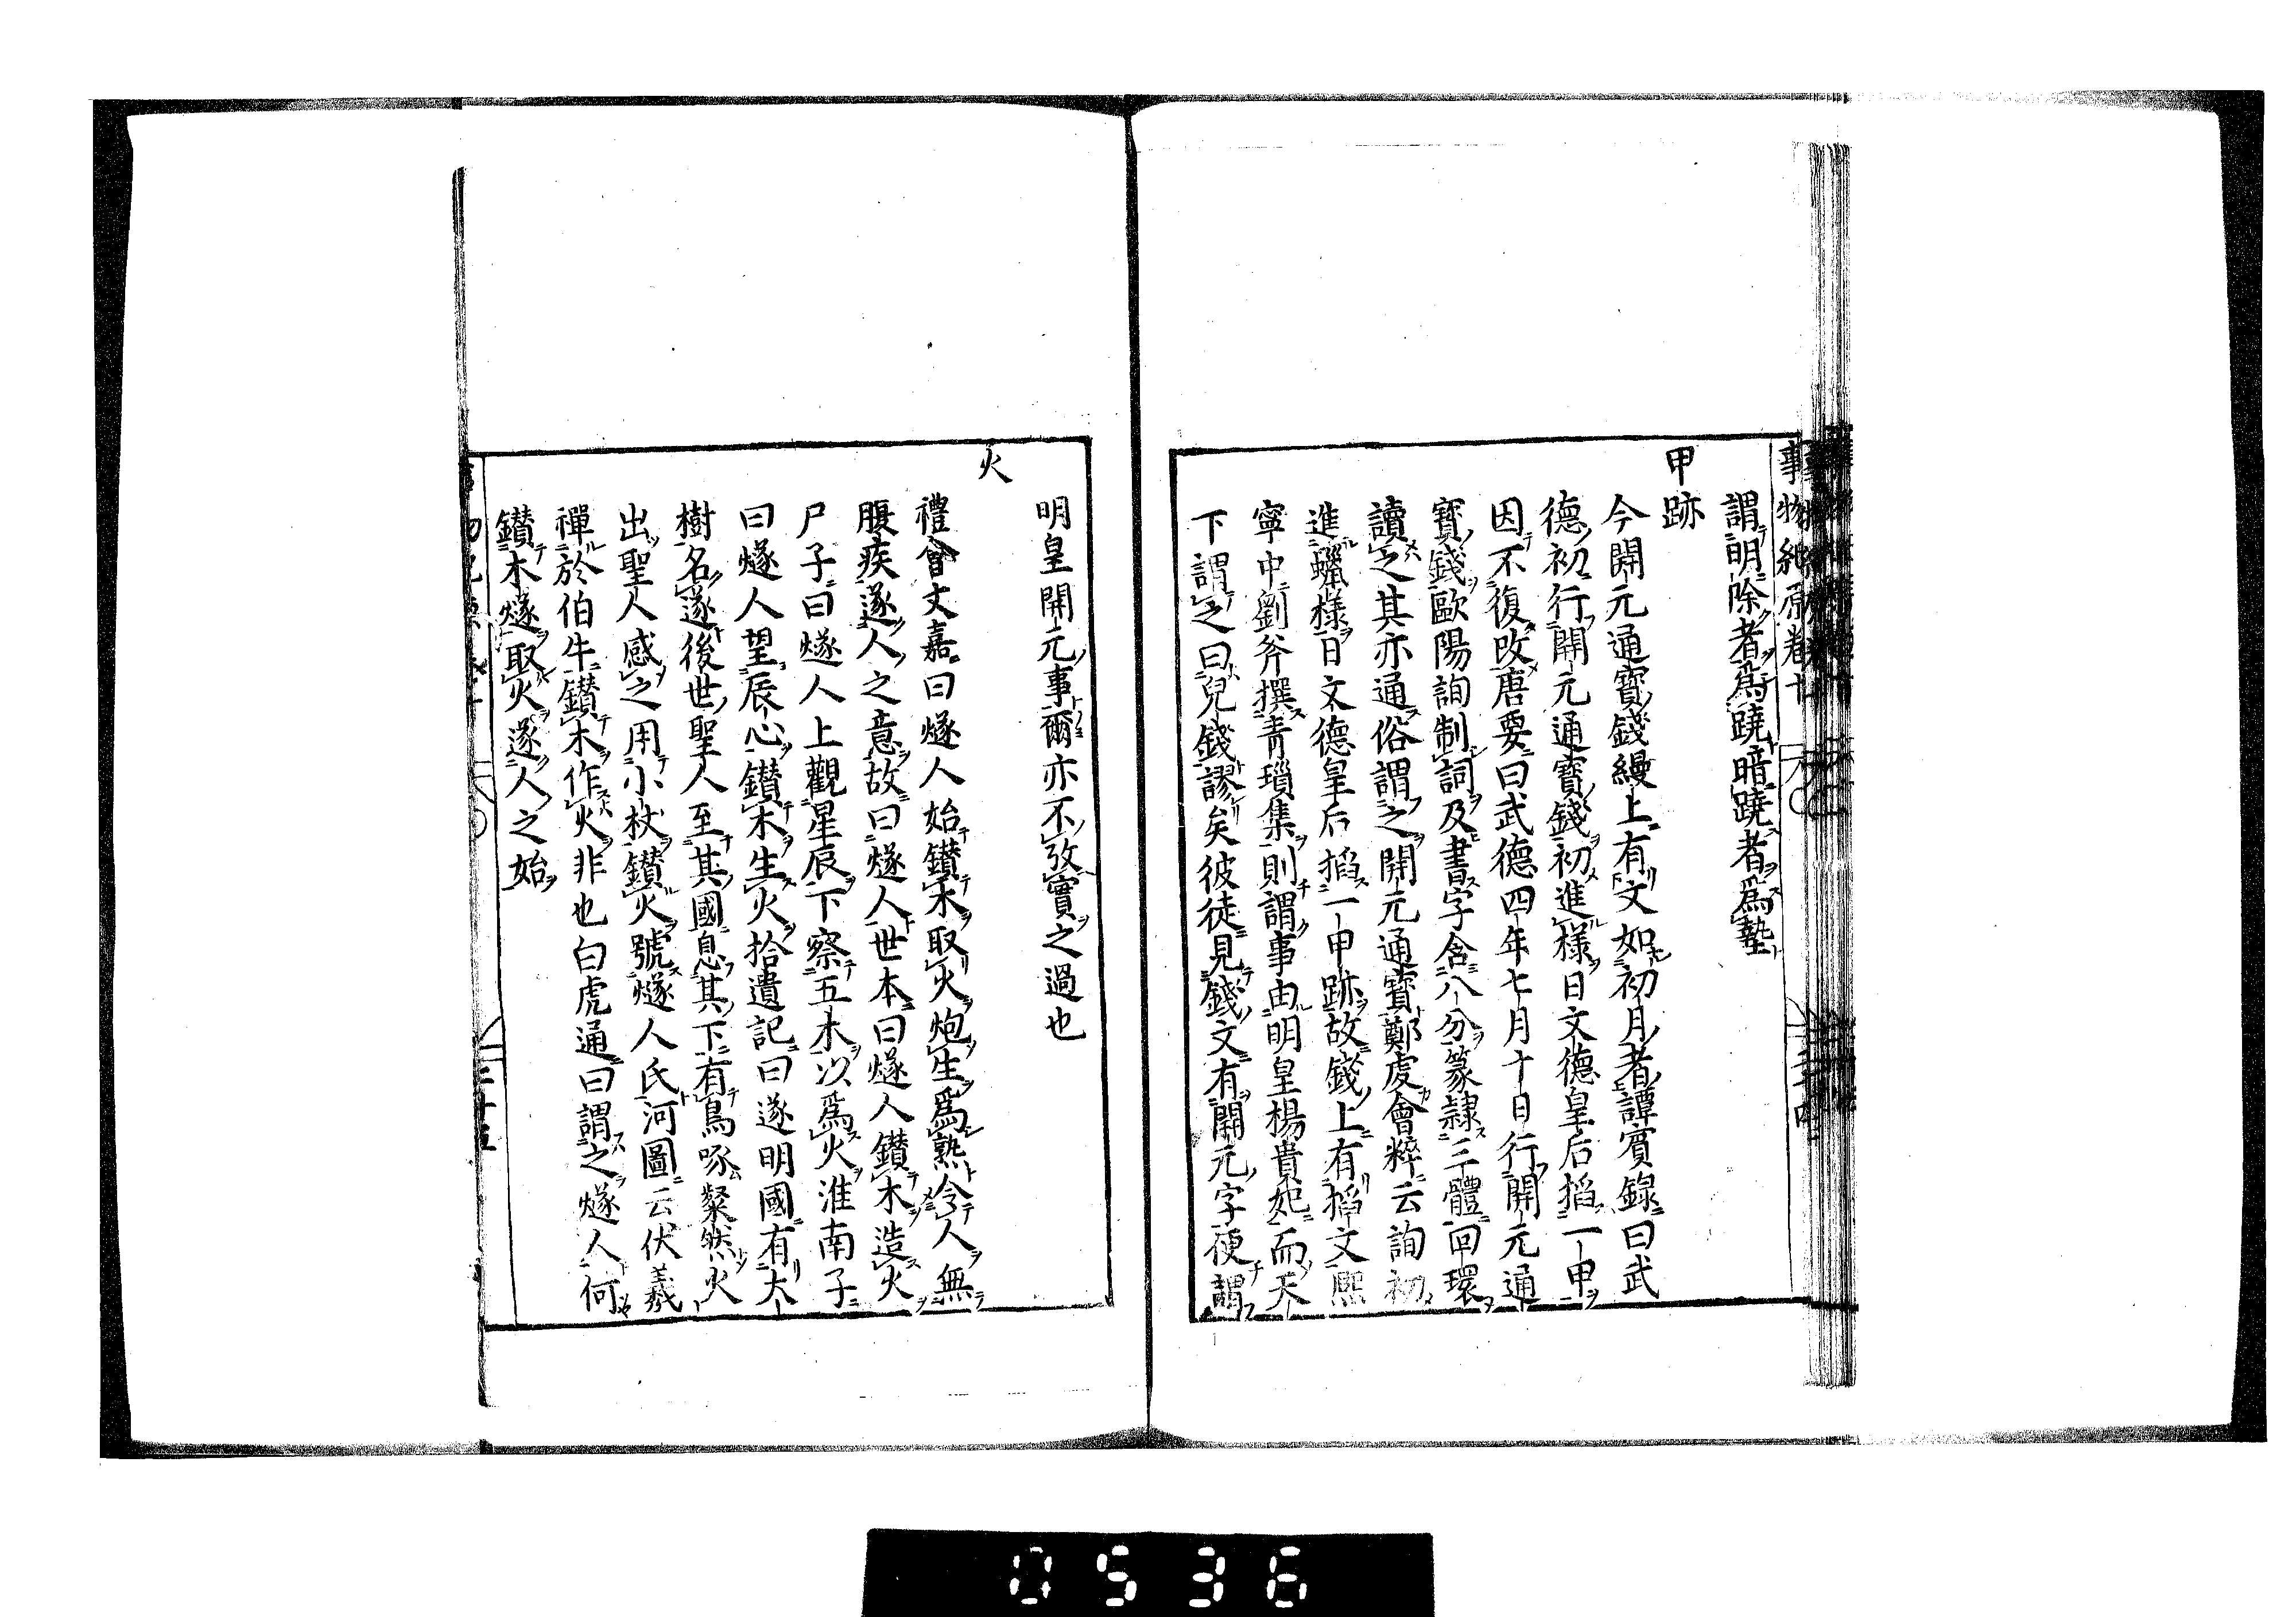 事物紀原卷十
謂明除者爲蹺暗蹺者爲墊
甲跡
今開元通寶錢縵上有文如初月者譚賓錄曰武
德初行開元通寶錢初進樣日文德皇后掐一甲
因不復改唐要曰武德四年七月十日行開元通
寳錢歐陽詢制詞及書字含八分篆隷三體回環
讀之其亦通俗謂之開元通寳鄭虔會粹云詢初
進蠟樣日文德皇后掐一甲跡故錢上有掐文熙
寧中劉斧撰青瑣集則謂事由明皇楊貴妃而天
下謂之曰兒錢謬矣彼徒見錢文有開元字便謂
明皇開元事爾亦不攷實之過也
火
禮含文嘉曰燧人始鑚木取火炮生爲熟令人無
腹疾遂人之意故曰燧人世本曰燧人鑚木造火
尸子曰燧人上觀星辰下察五木以爲火淮南子
曰燧人望辰心鑚木生火拾遺記曰遂明國有大
樹名遂後世聖人至其國息其下有鳥啄粲然火
出聖人感之用小杖鑚火號燧人氏河圖云伏羲
禪於伯牛鑚木作火非也白虎通曰謂之燧人何
鑚木燧取火遂人之始
二十五
0536